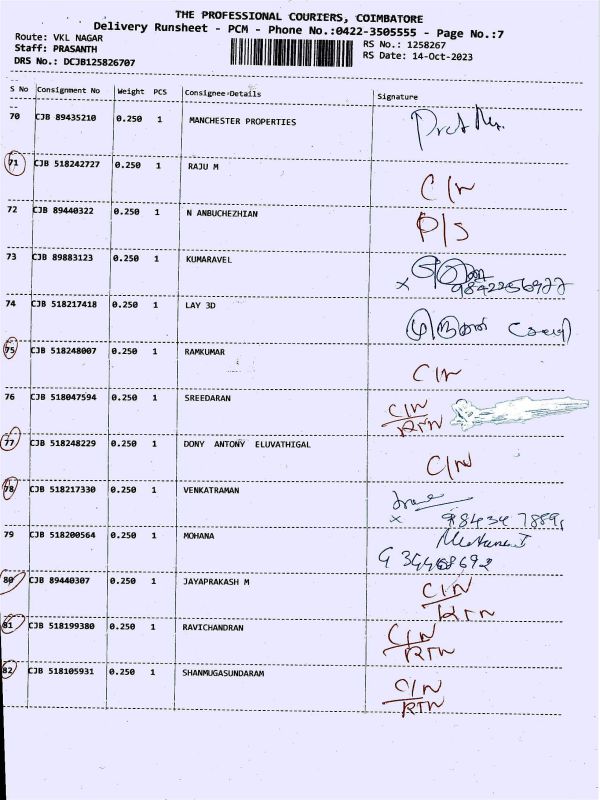 THE PROFESSIONAL COURIERS, COIMBATORE
Delivery Runsheet - PCM - Phone No.:0422-3505555 - Page No.:7
Route: VKL NAGAR
Staff: PRASANTH
DRS No.: DCJB125826707
RS No.: 1258267
RS Date: 14-Oct-2023
S No Consignment No Weight PCS Consignee Details Signature
70 CJB 89435210 0.250 1 MANCHESTER PROPERTIES
71 CJB 518242727 0.250 1 RAJU M C/N
72 CJB 89440322 0.250 1 N ANBUCHEZHIAN P/S
73 CJB 89883123 0.250 1 KUMARAVEL
74 CJB 518217418 0.250 1 LAY 3D
75 CJB 518248007 0.250 1 RAMKUMAR C/N
76 CJB 518047594 0.250 1 SREEDARAN C/N
RTN
77 CJB 518248229 0.250 1 DONY ANTONY ELUVATHIGAL C/N
78 CJB 518217330 0.250 1 VENKATRAMAN
79 CJB 518200564 0.250 1 MOHANA
80 CJB 89440307 0.250 1 JAYAPRAKASH M C/N
RTN
81 CJB 518199380 0.250 1 RAVICHANDRAN C/N
RTN
82 CJB 518105931 0.250 1 SHANMUGASUNDARAM C/N
RTN